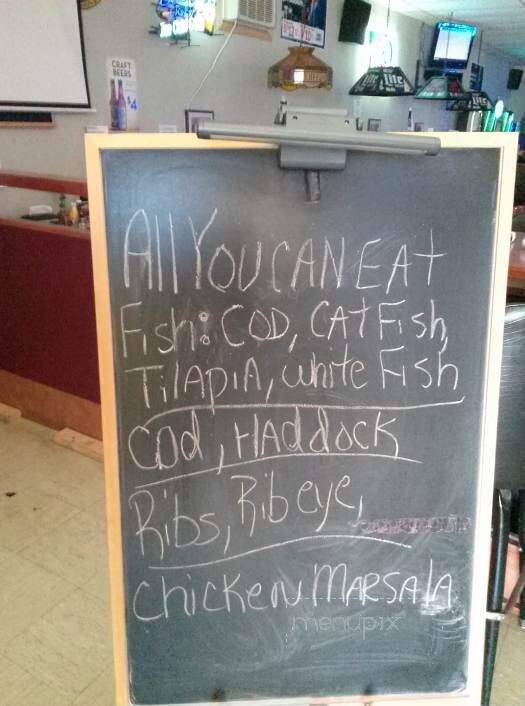 CRAFT
BEERS
$4
All YOU CAN EAt
Fish: COD, CAt Fish,
TilAPiA, white Fish
COd, HAddOCK
Ribs, Rib eye,
Chicken MARSAlA
menupix